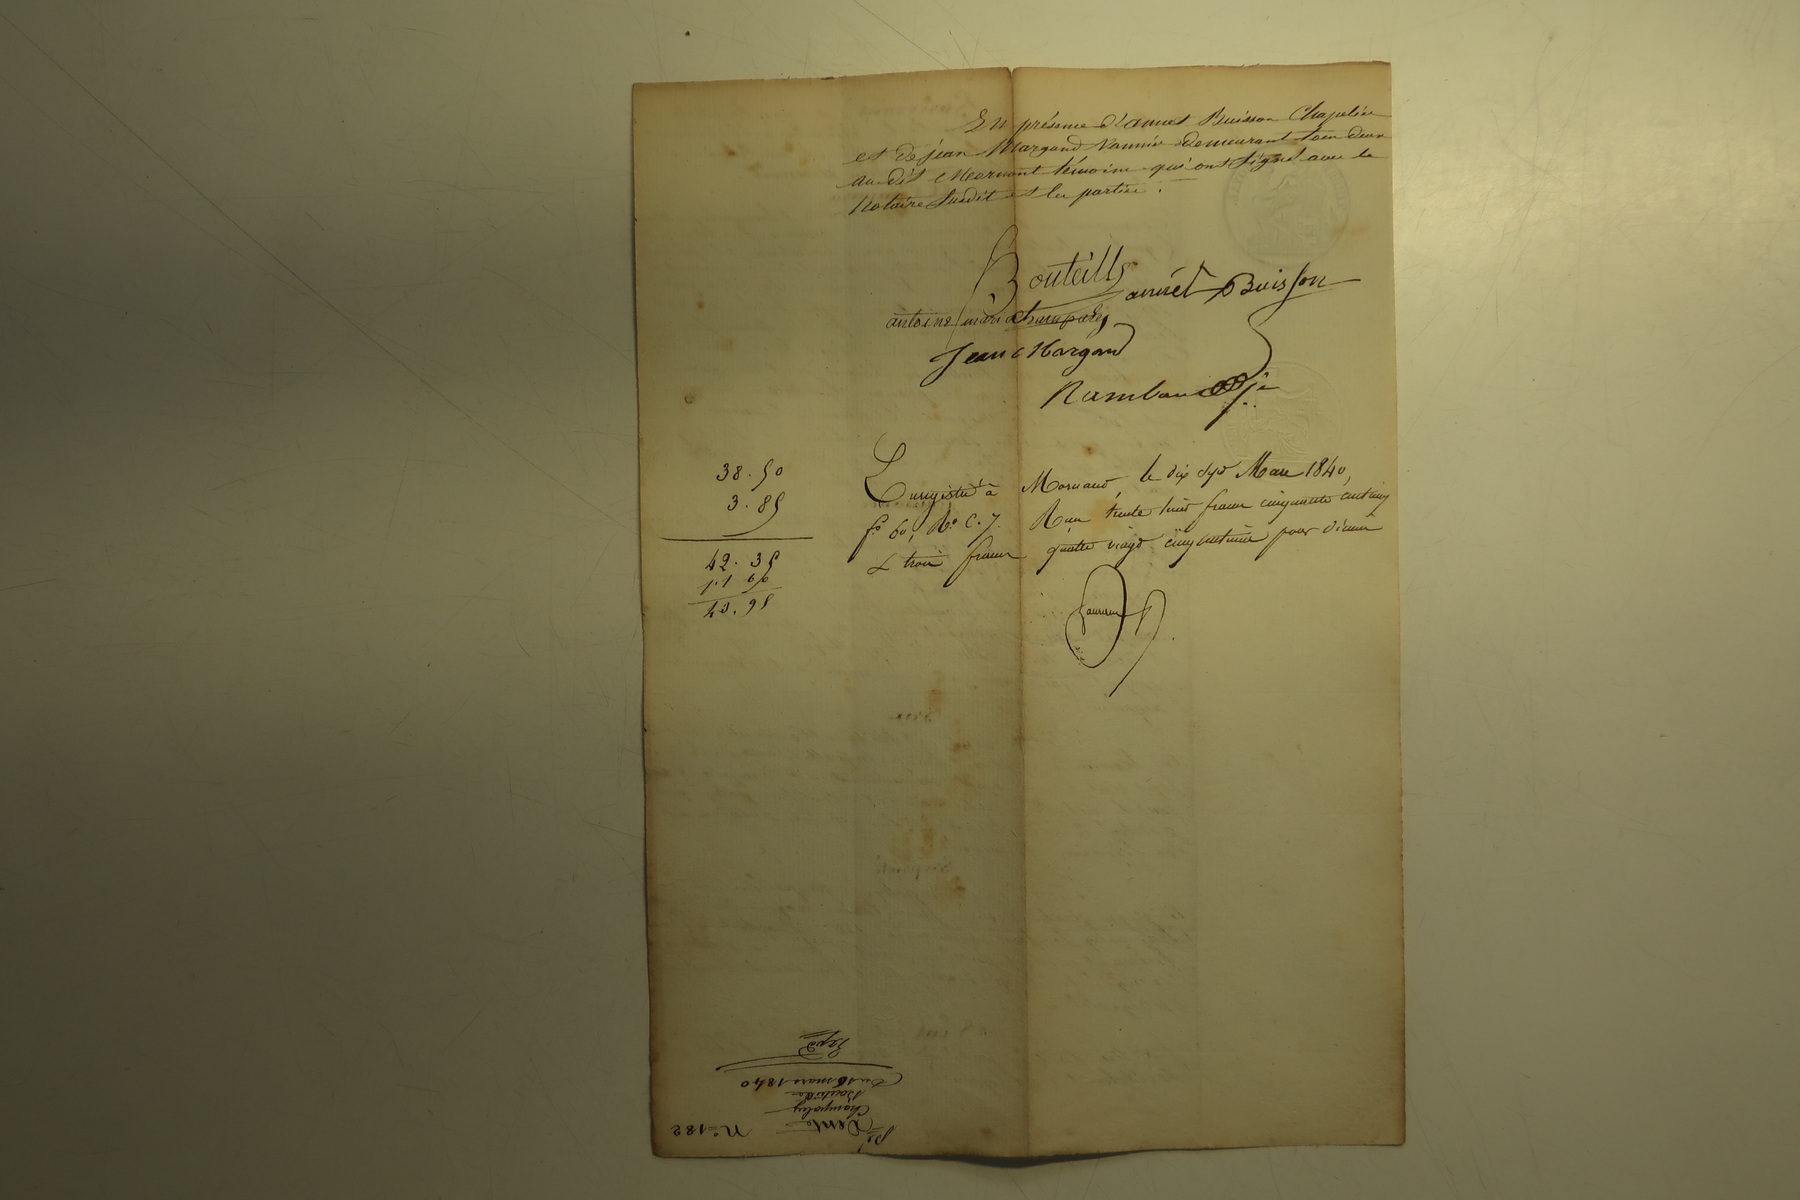 En présence d'annet Buisson Chapelier
et de jean Margand Vannier demeurant tous deux
audit Mornant témoins qui ont signé avec le
Notaire susdit et les parties.
Bouteille
annet Buisson
antoine marie
Jean Margand
Rambaud
38.50
3.85
42.35
1.60
43.95
Enregistré à Mornant, le dix sept Mars 1840,
fo 60, Ro C. 7. Reçu trente huit francs cinquante centimes
& trois francs quatre vingt cinq centimes pour dixième
No 182
Vente
Champaley
Bouteille
Du 16 mars 1840
Expd